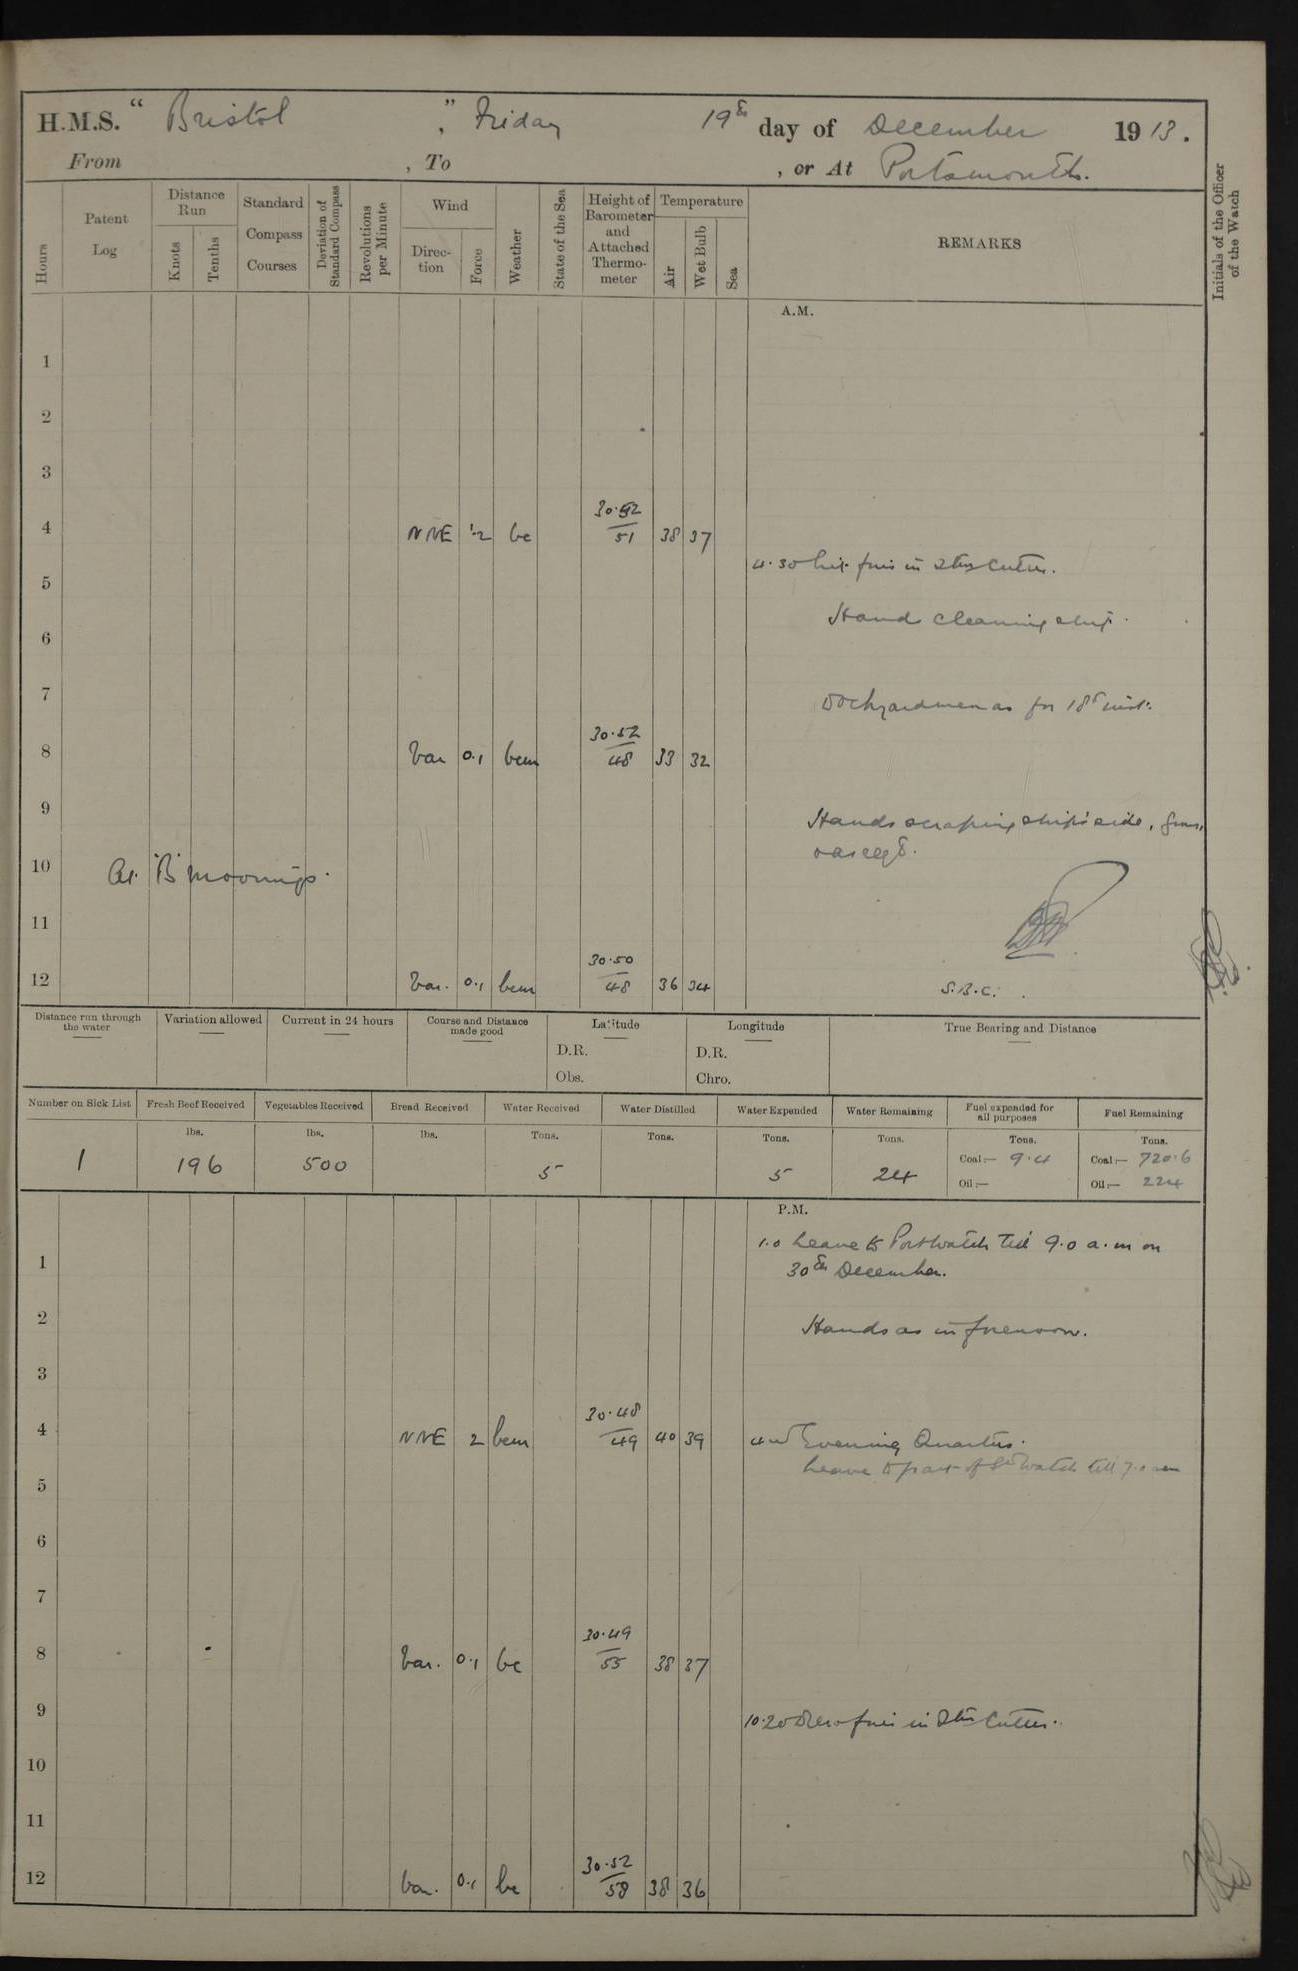 H.M.S. " Bristol ", Friday 19th day of December 1913.
From , To , or At Portsmouth.
Hours
Patent Log
Distance Run
Knots
Tenths
Standard Compass Courses
Deviation of Standard Compass
Revolutions per Minute
Wind
Direction
Force
Weather
State of the Sea
Height of Barometer and Attached Thermometer
Temperature
Air
Wet Bulb
Sea
REMARKS
Initials of the Officer of the Watch
A.M.
1
2
3
4 NNE 1.2 bc 30.52 51 38 37
4.30 fires in 2nd Cutter.
5
Hands cleaning ship.
6
7
Dockyardmen as for 18th inst.
8 Var 0.1 bcm 30.52 48 33 32
9
Hands scraping ship's side,
10 At 'B' moorings.
11
12 Var. 0.1 bcm 30.50 48 36 34
S.B.C.
Distance run through the water
Variation allowed
Current in 24 hours
Course and Distance made good
Latitude
D.R.
Obs.
Longitude
D.R.
Chro.
True Bearing and Distance
Number on Sick List
Fresh Beef Received
Vegetables Received
Bread Received
Water Received
Water Distilled
Water Expended
Water Remaining
Fuel expended for all purposes
Fuel Remaining
lbs. lbs. lbs. Tons. Tons. Tons. Tons. Tons. Tons.
1 196 500 5 5 24 Coal:— 9.4 Coal:— 720.6
Oil:— Oil:— 224
P.M.
1.0 Leave to Port Watch till 9.0 a.m on
1
30th December.
2
Hands as in forenoon.
3
4 NNE 2 bcm 30.48 49 40 39 Evening Quarters.
Leave to part of Watch till 7.0 am
5
6
7
8 Var. 0.1 bc 30.49 55 38 37
9
10.20 Drew fires in 2nd Cutter.
10
11
12 Var. 0.1 bc 30.52 58 38 36